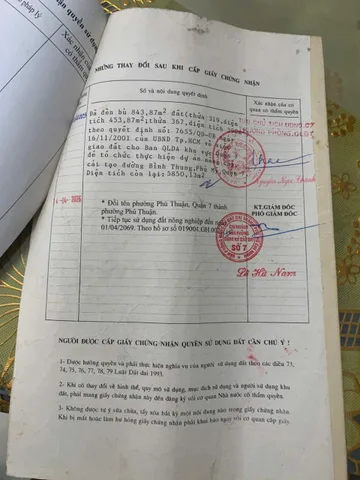 NHỮNG THAY ĐỔI SAU KHI CẤP GIẤY CHỨNG NHẬN
Số và nội dung quyết định
Xác nhận của cơ
quan có thẩm quyền
Đã đền bù 843,87m² đất(thửa 319,diện
tích 453,87m²;thửa 367,diện tích
theo quyết định số: 7655/QĐ-UB
16/11/2001 của UBND Tp.HCM về
giao đất cho Ban QLDA khu vực
để tổ chức thực hiện dự án
cải tạo đường Bình Thung,Phú Mỹ,Quận 7
Diện tích còn lại: 5850,13m²
TM CHỦ TỊCH UBND.Q7
TRƯỞNG PHÒNG.QLĐT
Nguyễn Ngọc Thành
* Đổi tên phường Phú Thuận, Quận 7 thành
phường Phú Thuận.
* Tiếp tục sử dụng đất nông nghiệp đến ngày
01/04/2069. Theo hồ sơ số
KT.GIÁM ĐỐC
PHÓ GIÁM ĐỐC
SỐ 7
Lê Hà Nam
NGƯỜI ĐƯỢC CẤP GIẤY CHỨNG NHẬN QUYỀN SỬ DỤNG ĐẤT CẦN CHÚ Ý !
1- Được hưởng quyền và phải thực hiện nghĩa vụ của người sử dụng đất theo các điều 73,
74, 75, 76, 77, 78, 79 Luật Đất đai 1993.
2- Khi có thay đổi về hình thể, quy mô sử dụng, mục đích sử dụng và người sử dụng khu
đất, phải mang giấy chứng nhận này đến đăng ký với cơ quan Nhà nước có thẩm quyền.
3- Không được tự ý sửa chữa, tẩy xóa bất kỳ một nội dung nào trong giấy chứng nhận.
Khi bị mất hoặc làm hư hỏng giấy chứng nhận phải khai báo ngay với cơ quan cấp giấy.